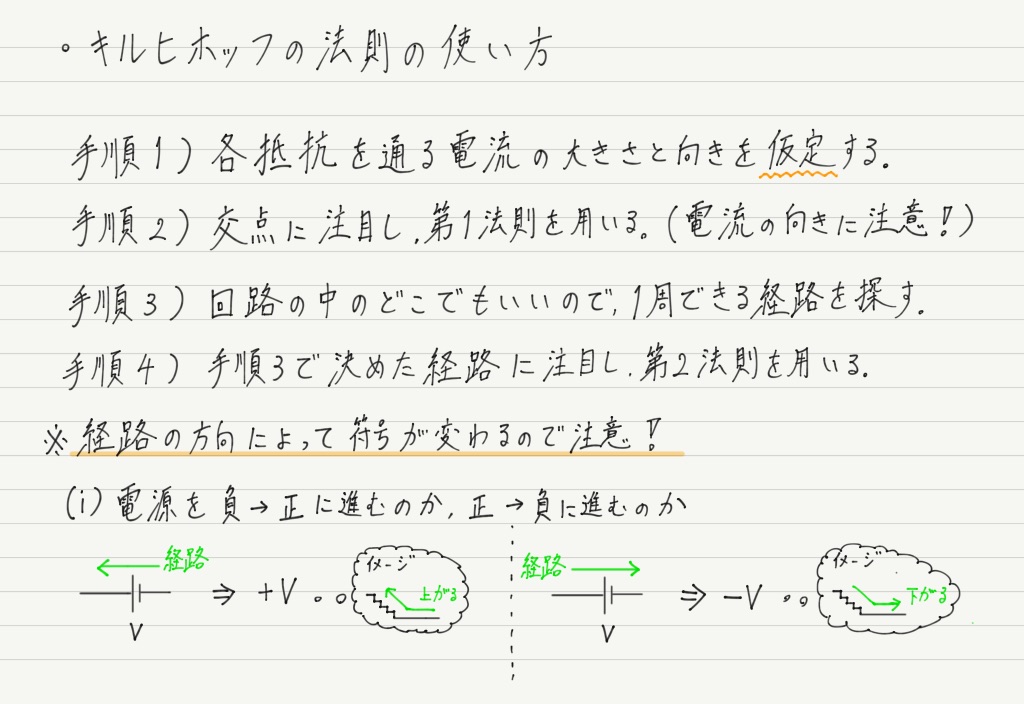 ◦ キルヒホッフの法則の使い方
手順1) 各抵抗を通る電流の大きさと向きを仮定する.
手順2) 交点に注目し,第1法則を用いる.(電流の向きに注意!)
手順3) 回路の中のどこでもいいので,1周できる経路を探す.
手順4) 手順3で決めた経路に注目し,第2法則を用いる.
※ 経路の方向によって符号が変わるので注意!
(i) 電源を負→正に進むのか,正→負に進むのか
経路
V
⇒ +V
イメージ
上がる
経路
V
⇒ −V
イメージ
下がる